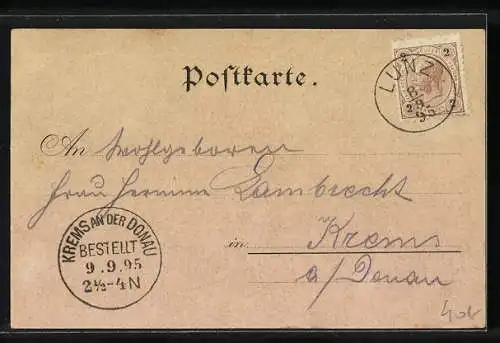 Postkarte.
LUNZ
8/9
95
2 2
2 2
An Wohlgeboren
Frau Hermine Lambrecht
in Krems
a/Donau
KREMS AN DER DONAU
BESTELLT
9.9.95
2½-4N